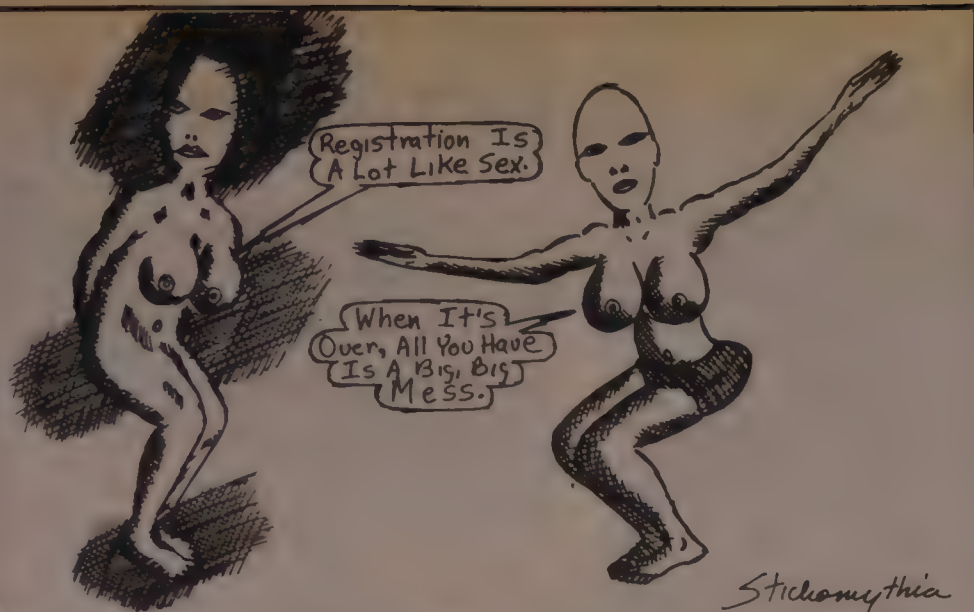 Registration Is
A Lot Like Sex.
When It's
Over, All You Have
Is A Big, Big
Mess.
Stichomythia